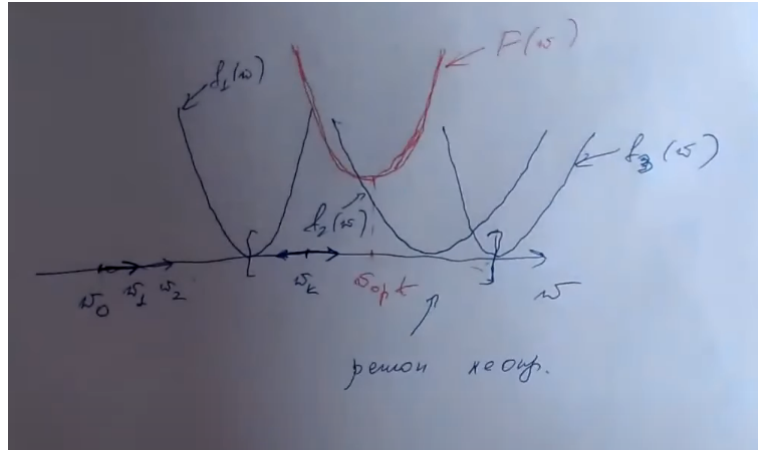 f₁(w)
F(w)
f₂(w)
f₃(w)
w₀ w₁ w₂ wₖ w_opt w
регион неопр.